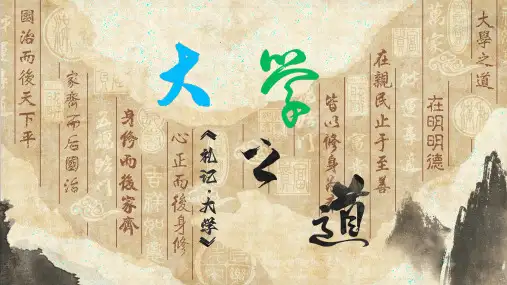 大学之道
《礼记·大学》
大學之道
在明明德
在親民止于至善
皆以修身
心正而後身修
身修而後家齊
家齊而后國治
國治而後天下平